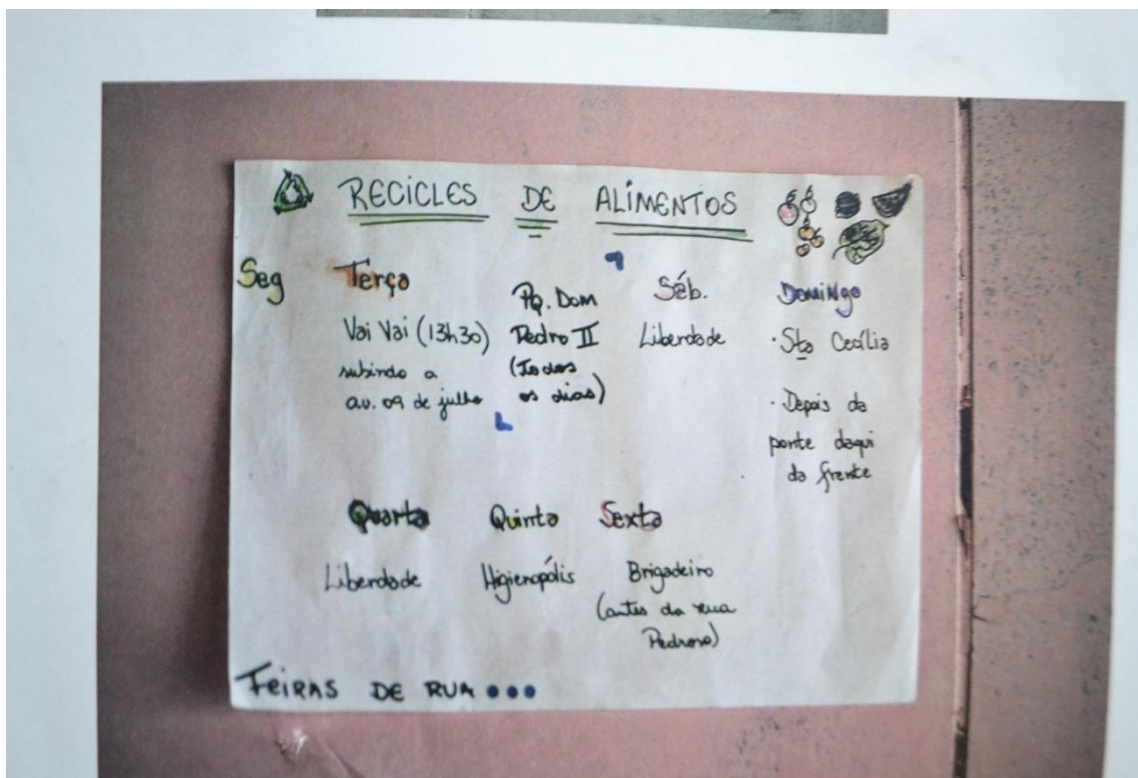 RECICLES DE ALIMENTOS
Seg
Terça
Vai Vai (13h30)
subindo a
av. 09 de julho
Pq. Dom
Pedro II
(Todos
os dias)
Sáb.
Liberdade
Domingo
· Sta Cecília
· Depois da
ponte daqui
da frente
Quarta
Liberdade
Quinta
Higienópolis
Sexta
Brigadeiro
(antes da rua
Pedroso)
FEIRAS DE RUA •••